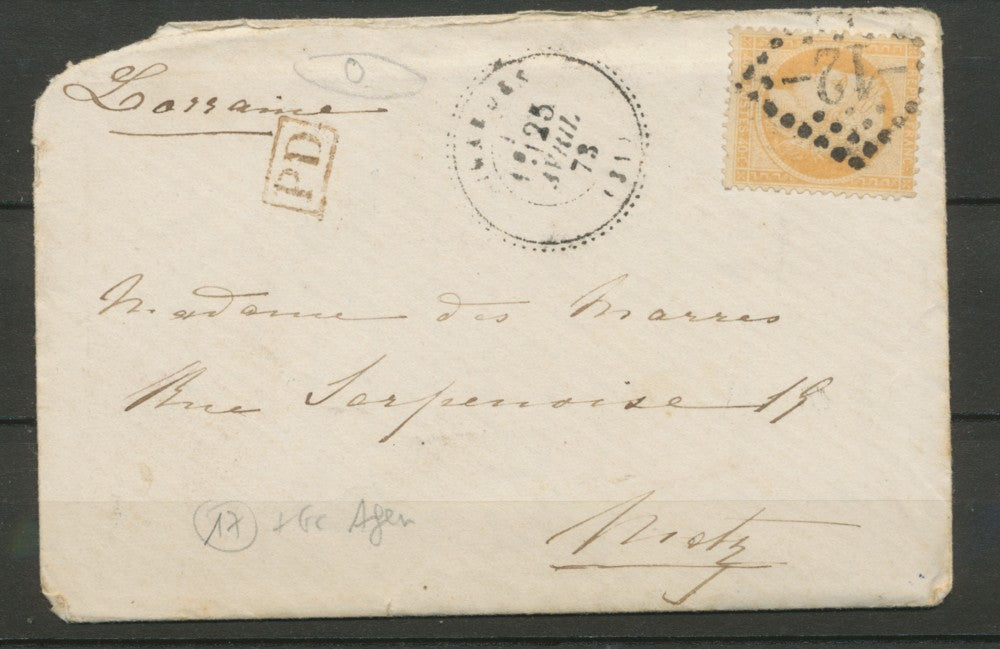 Lorraine
PD
25
AVRIL
73
(31)
12
Madame des Marres
Rue Serpenoise 19
Metz
17 + Gc Agen